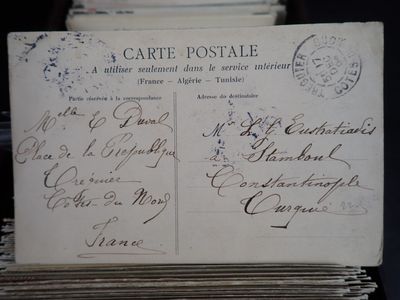 CARTE POSTALE
A utiliser seulement dans le service intérieur
(France — Algérie — Tunisie)
Partie réservée à la correspondance
Adresse du destinataire
Melle E Duval
Place de la République
Tréguier
Côtes-du Nord
France
Mr Eustratiadis
à Stamboul
Constantinople
Turquie
TREGUIER
COTES